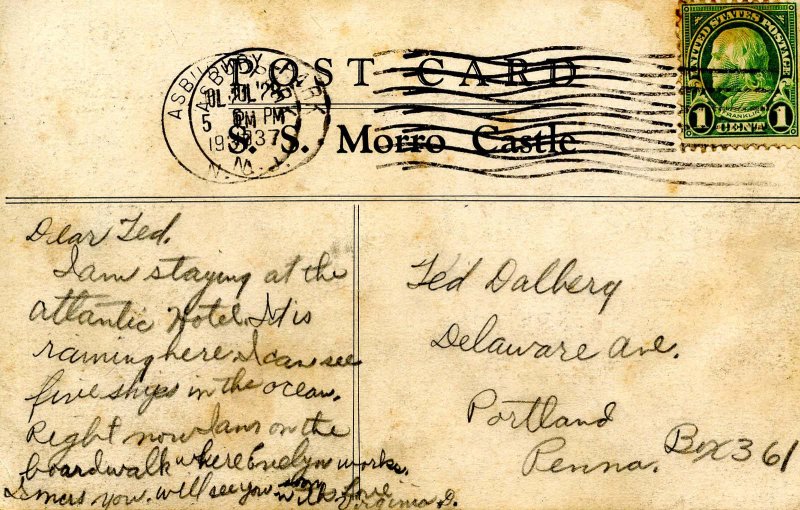 POST CARD
S. S. Morro Castle
ASBURY PARK
JUL 28
5 PM
1937
N. J.
UNITED STATES POSTAGE
FRANKLIN
1 CENT 1
Dear Ted.
I am staying at the
Atlantic Hotel. It is
raining here I can see
five ships in the ocean.
Right now I am on the
boardwalk where Evelyn works.
I miss you. will see you soon
with love
Virginia D.
Ted Dalberg
Delaware Ave.
Portland
Penna. Box 361